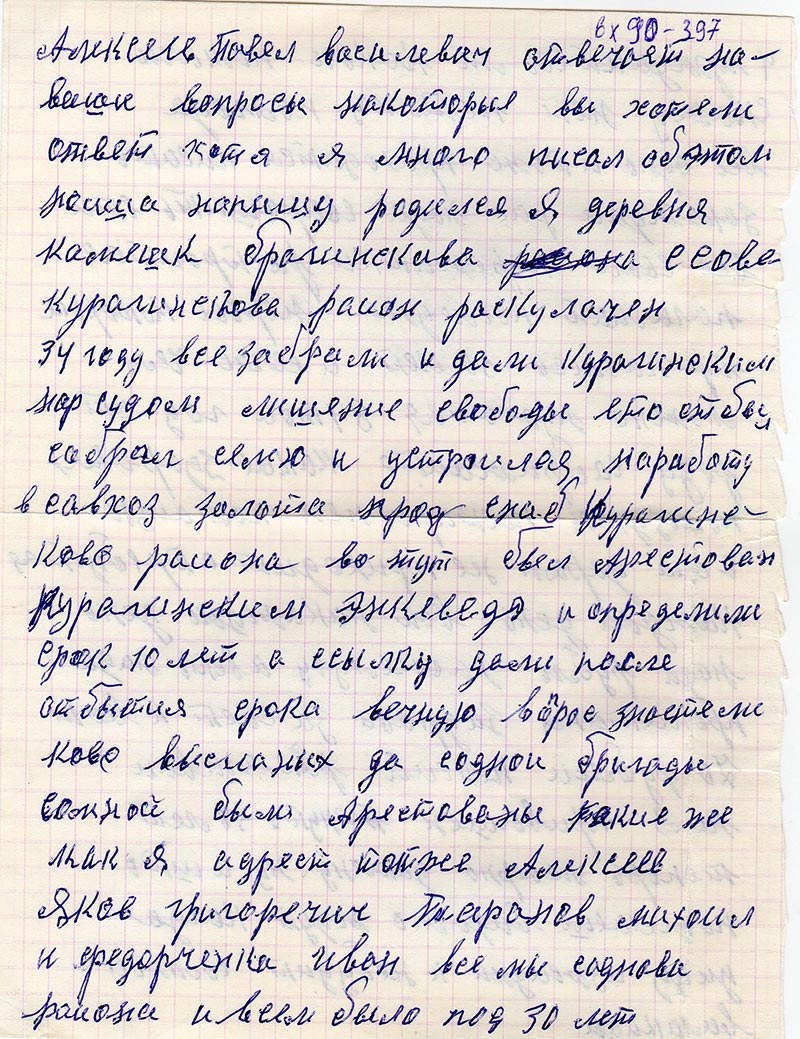 вх 90-397
Алексеев Павел василевич отвечает на-
ваши вопросы накоторые вы хотели
ответ хотя я много писал обэтом
напишу родился я деревня
камешк брагинскива района ссове
Курагинскова район раскулачен
34 году все забрали и дали Курагинским
нар судом лишение свободы его отбыл
собрал семю и устроился наработу
в савхоз залота прод снаб Курагинс-
ково района во тут был Арестован
Курагинским Энкеведэ и определили
срок 10 лет а ссылку дали после
отбытия срока вечную вопрос знаетели
ково высланых да соднои бригады
сомной были Арестованы такие же
как я адрест тотже Алексеев
Яков григоречич Таранов михаил
и федорченка иван все мы соднова
района и всем было под 30 лет